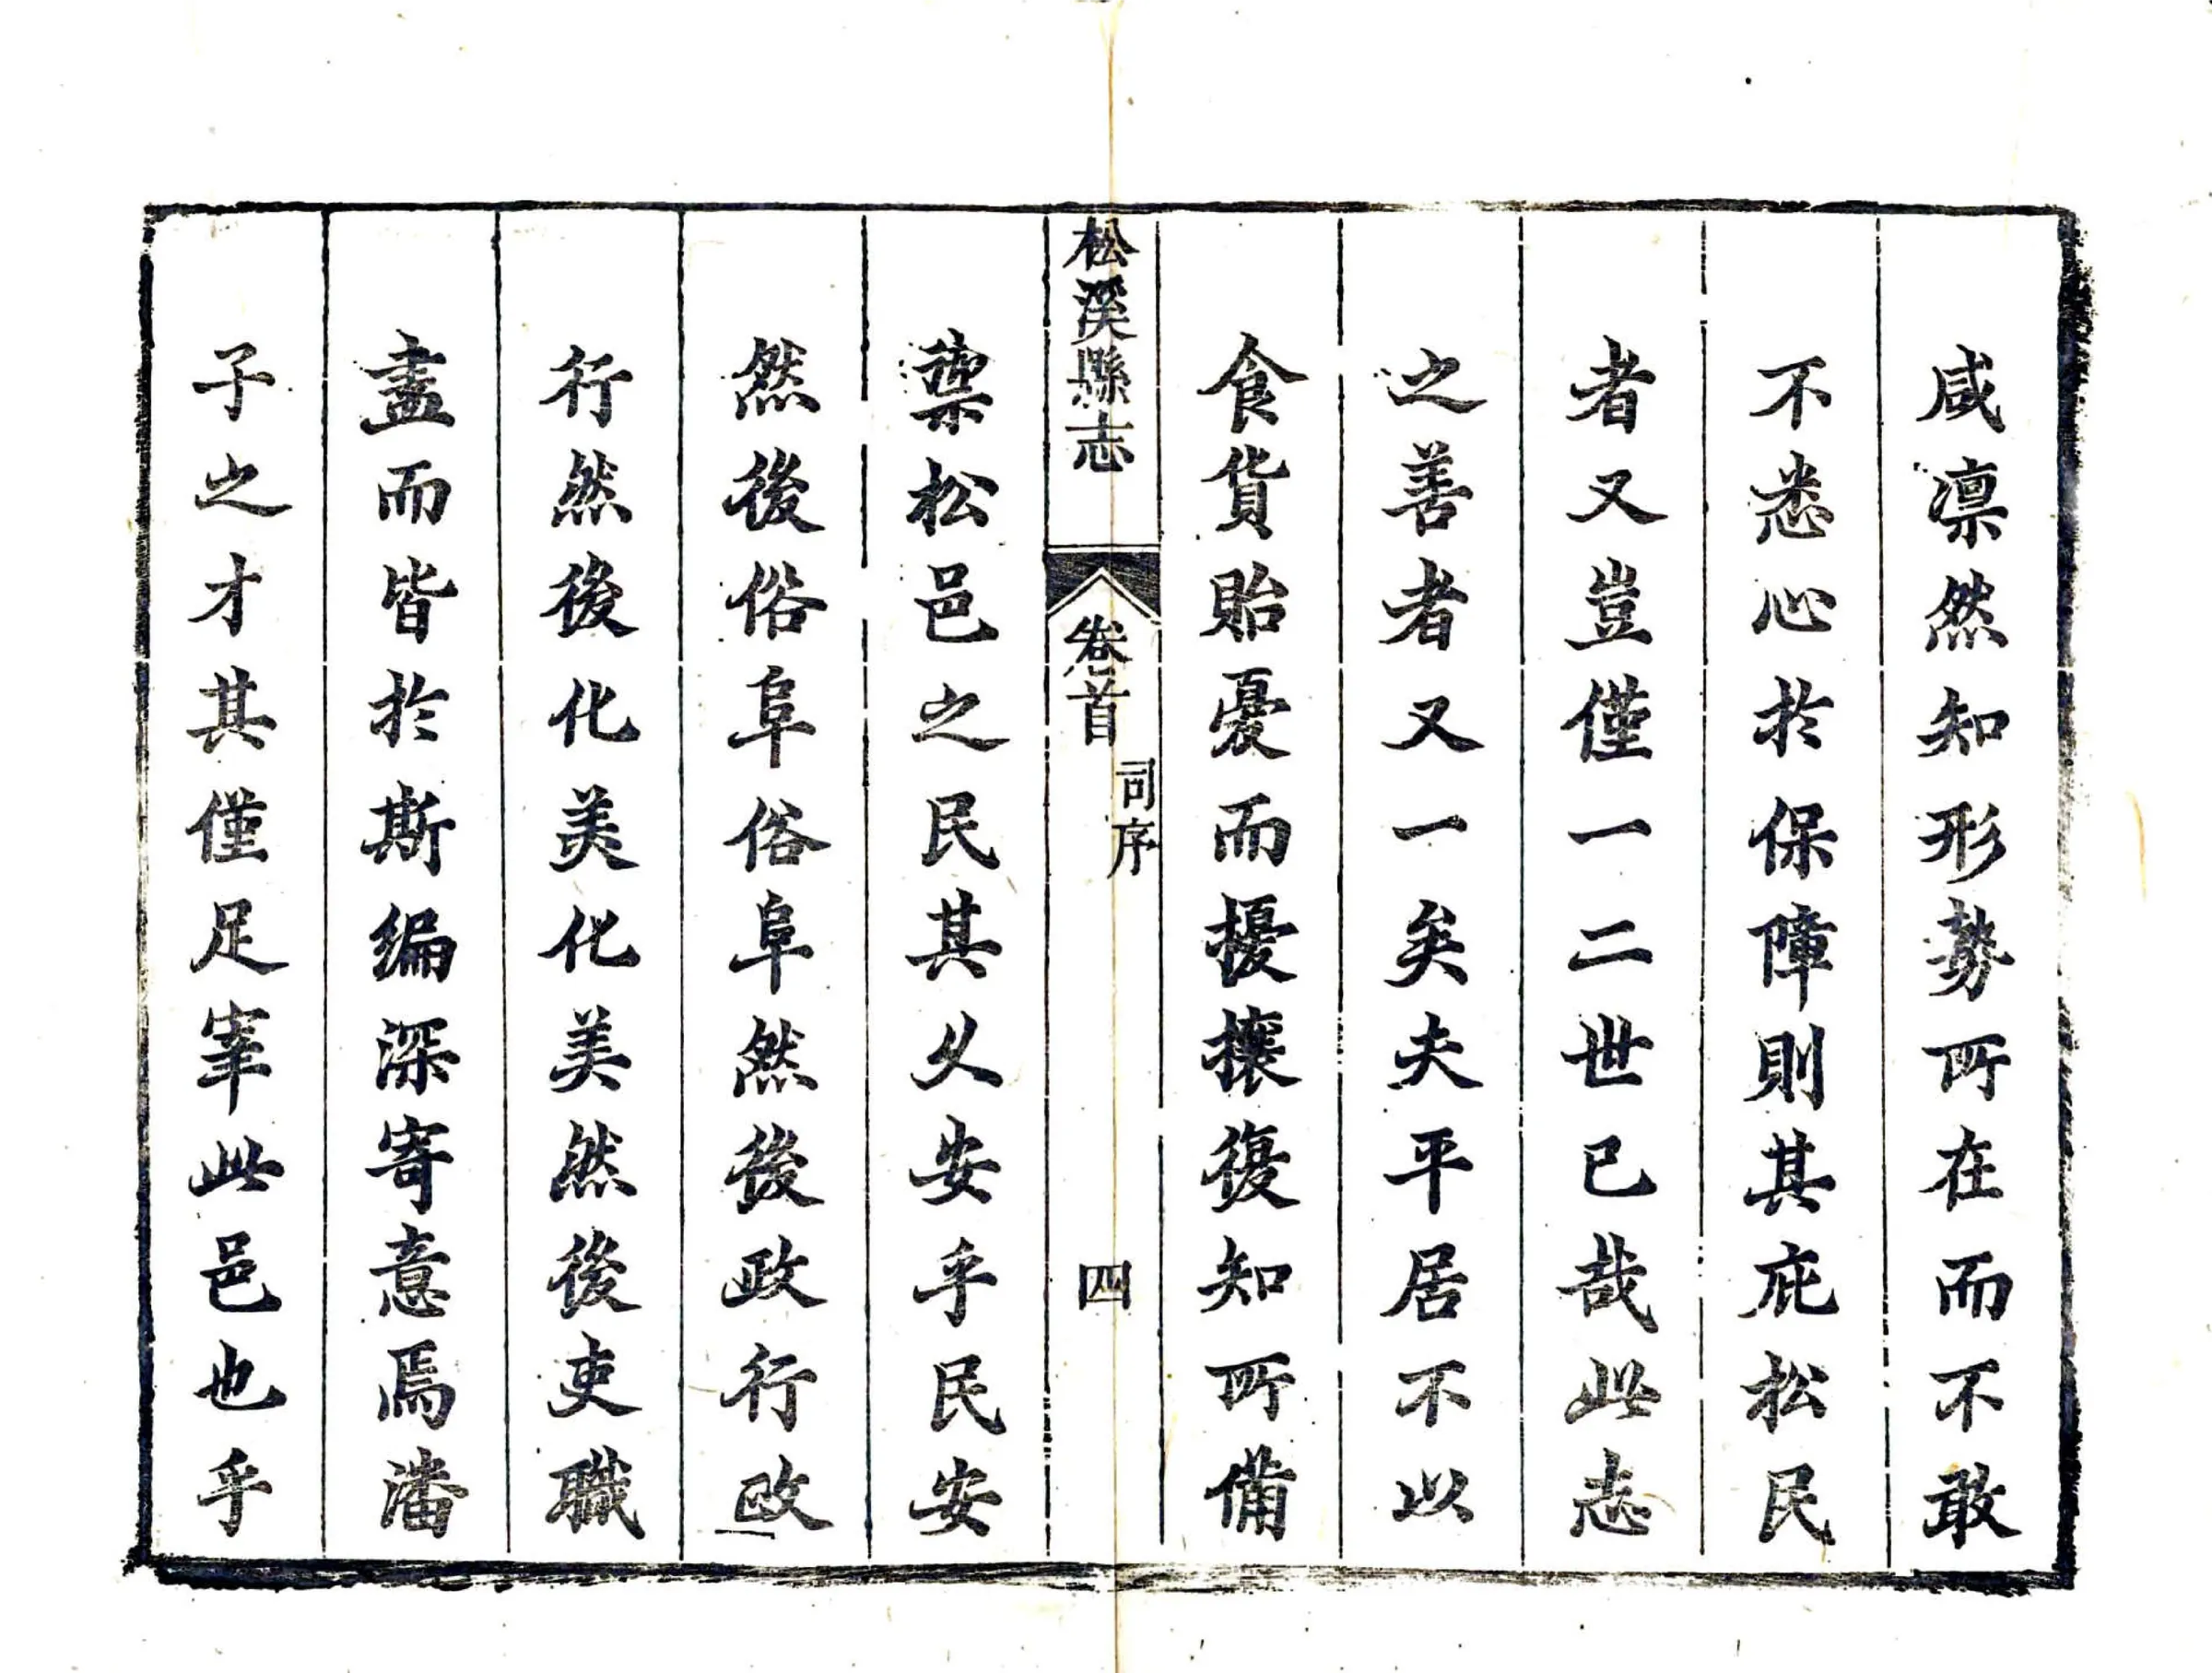 咸凛然知形勢所在而不敢
不悉心於保障則其庇松民
者又豈僅一二世已哉此志
之善者又一矣夫平居不以
食貨貽憂而擾攘復知所備
松溪縣志
卷首
司序
四
禦松邑之民其乆安乎民安
然後俗阜俗阜然後政行政
行然後化美化美然後吏職
盡而皆於斯編深寄意焉潘
子之才其僅足宰此邑也乎